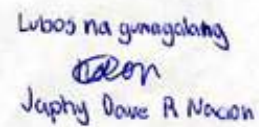 Lubos na gumagalang
Japhy Dave R Nacion